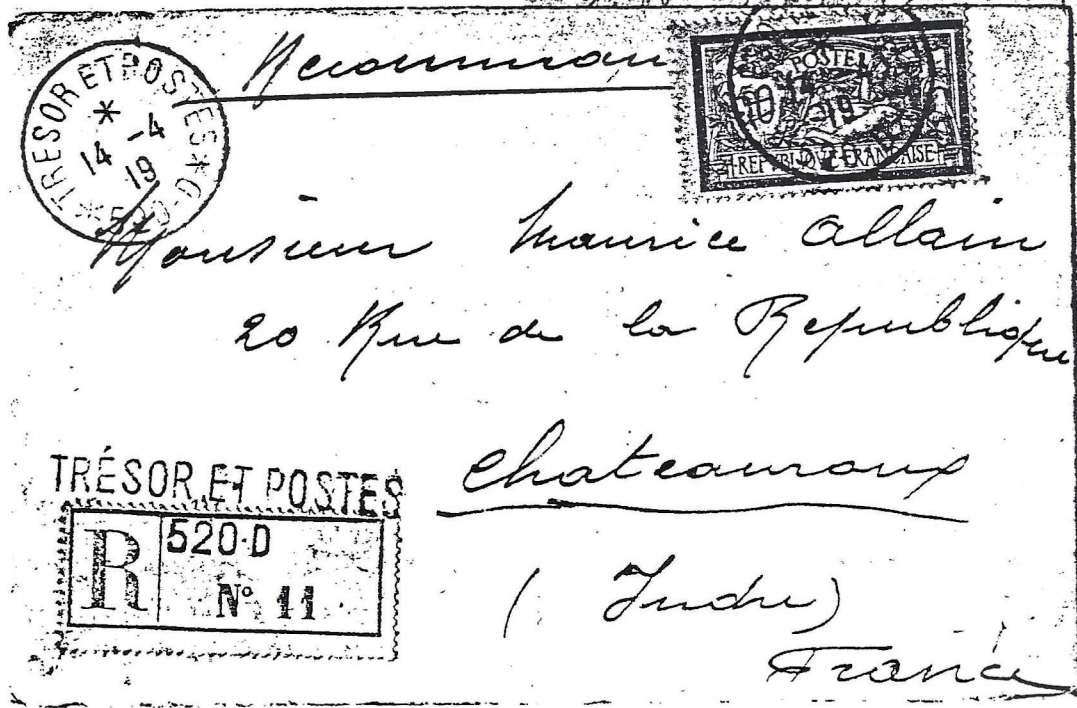 Recomman
TRESOR ET POSTES * 520-D *
*
14 -4
19
POSTE
14 -4
19
REPUBLIQUE FRANÇAISE
Monsieur Maurice Allain
20 Rue de la Republique
Chateauroux
(Indre)
France
TRÉSOR ET POSTES
R
520-D
N° 11